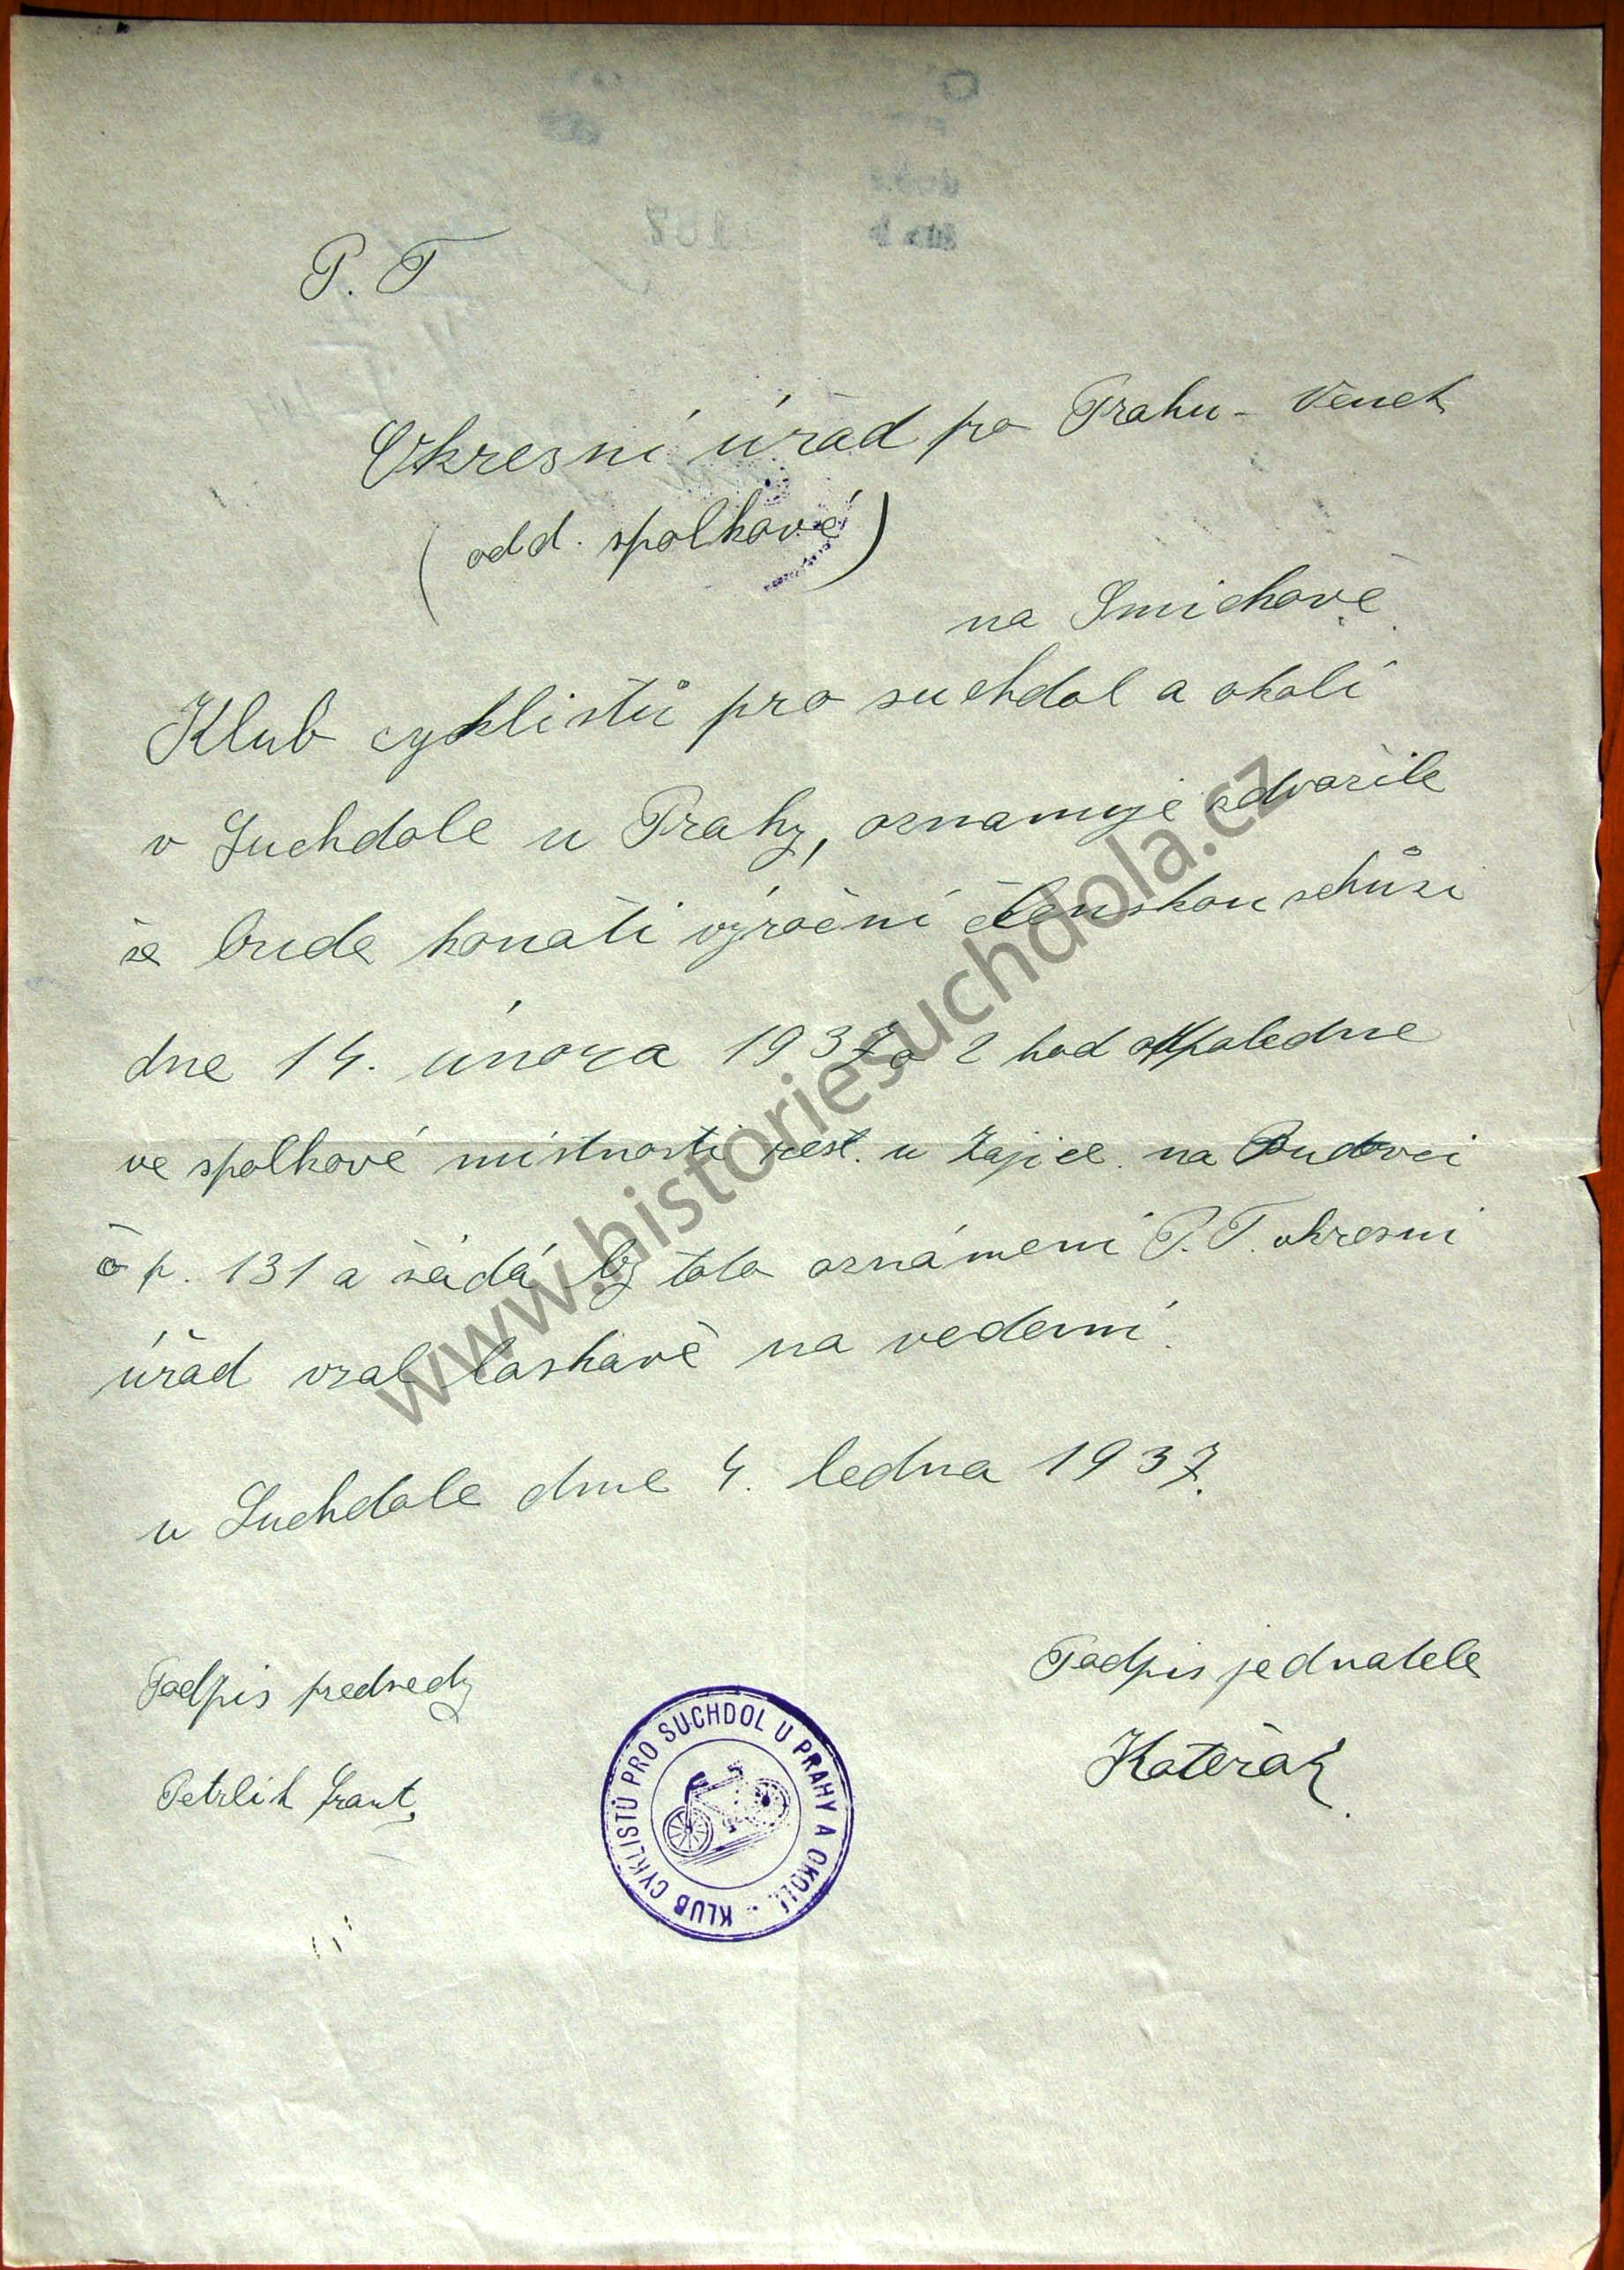 P. T
Okresní úřad po Prahu - Venek
( odd. spolkové )
na Smichově
Klub cyklistů pro suchdol a okolí
v Suchdole u Prahy, oznamuje zdvořile
že bude konati výroční členskou schůzi
dne 14. února 1937 o 2 hod odpoledne
ve spolkové místnosti rest. u Zajíce na Budovci
čp. 131 a žádá by toto oznámení P. T. okresní
úřad vzal laskavě na vedemí.
v Suchdole dne 4. ledna 1937.
Podpis predsedy
Podpis jednatele
Petrlik Frant.
Kateřák
KLUB CYKLISTŮ PRO SUCHDOL U PRAHY A OKOLÍ
www.historiesuchdola.cz